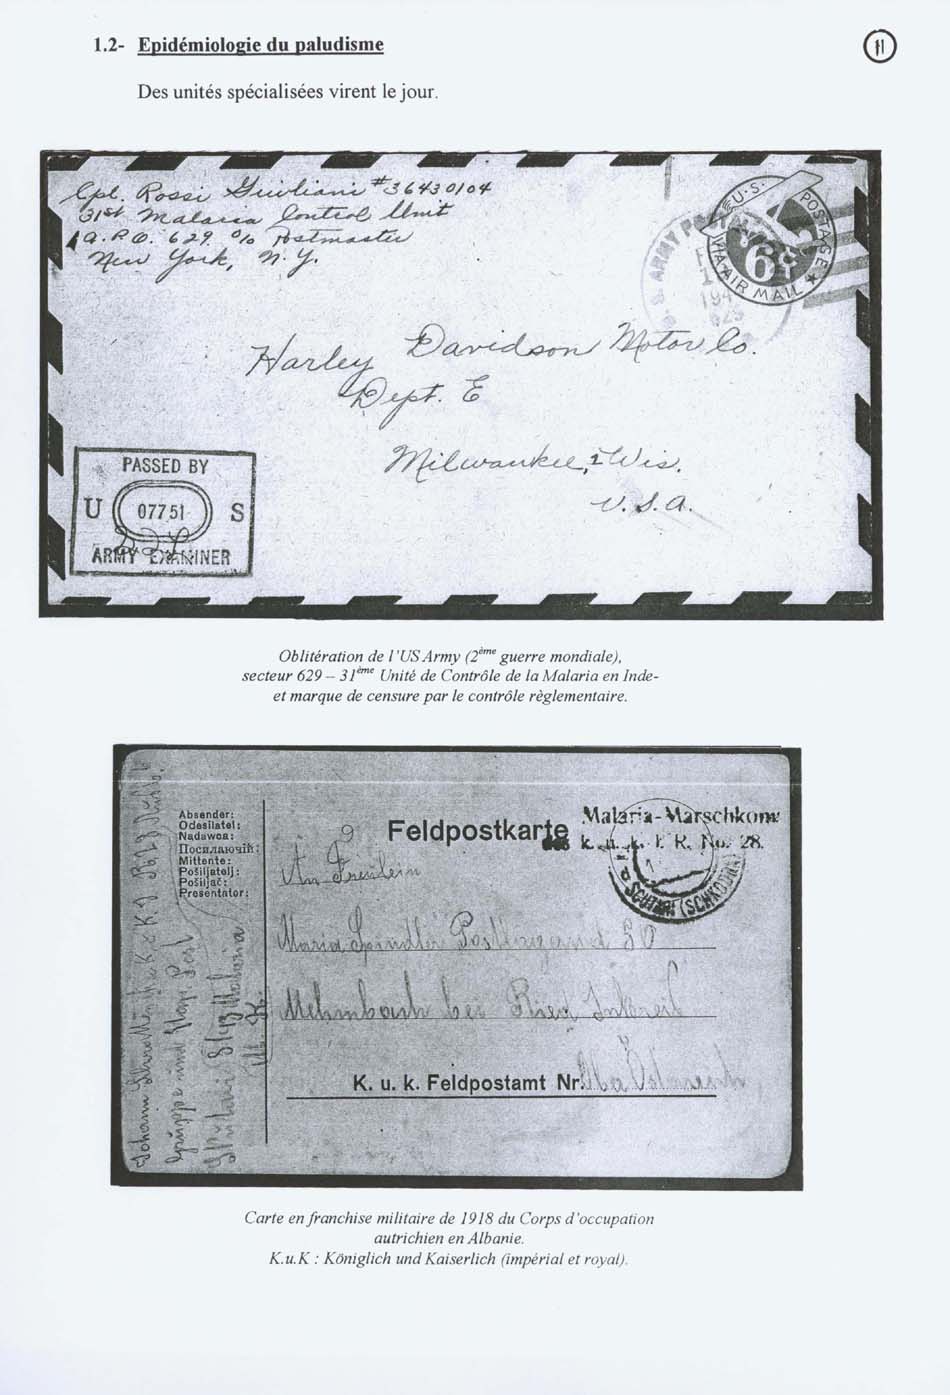 1.2- Epidémiologie du paludisme
11
Des unités spécialisées virent le jour.
Cpl. Rossi Giuliani #36430104
31st Malaria Control Unit
A.P.O. 629 c/o Postmaster
New York, N.Y.
U.S. POSTAGE
6¢
VIA AIR MAIL
U.S. ARMY POSTAL
194
629
Harley Davidson Motor Co.
Dept. E
Milwaukee, 1 Wis.
U.S.A.
PASSED BY
U 07751 S
ARMY EXAMINER
Oblitération de l'US Army (2ème guerre mondiale),
secteur 629 – 31ème Unité de Contrôle de la Malaria en Inde-
et marque de censure par le contrôle règlementaire.
Absender:
Odesílatel:
Nadawca:
Посилаючий:
Mittente:
Pošiljatelj:
Pošiljač:
Presentator:
Feldpostkarte
Malaria-Marschkomp
des k. u. k. I. R. No. 28.
SCUTARI (SCHKODRA)
An Fräulein
Maria Spindler
bei Ried
K. u. k. Feldpostamt Nr.
Johann
Gruppe und
Malaria
Carte en franchise militaire de 1918 du Corps d'occupation
autrichien en Albanie.
K.u.K : Königlich und Kaiserlich (impérial et royal).